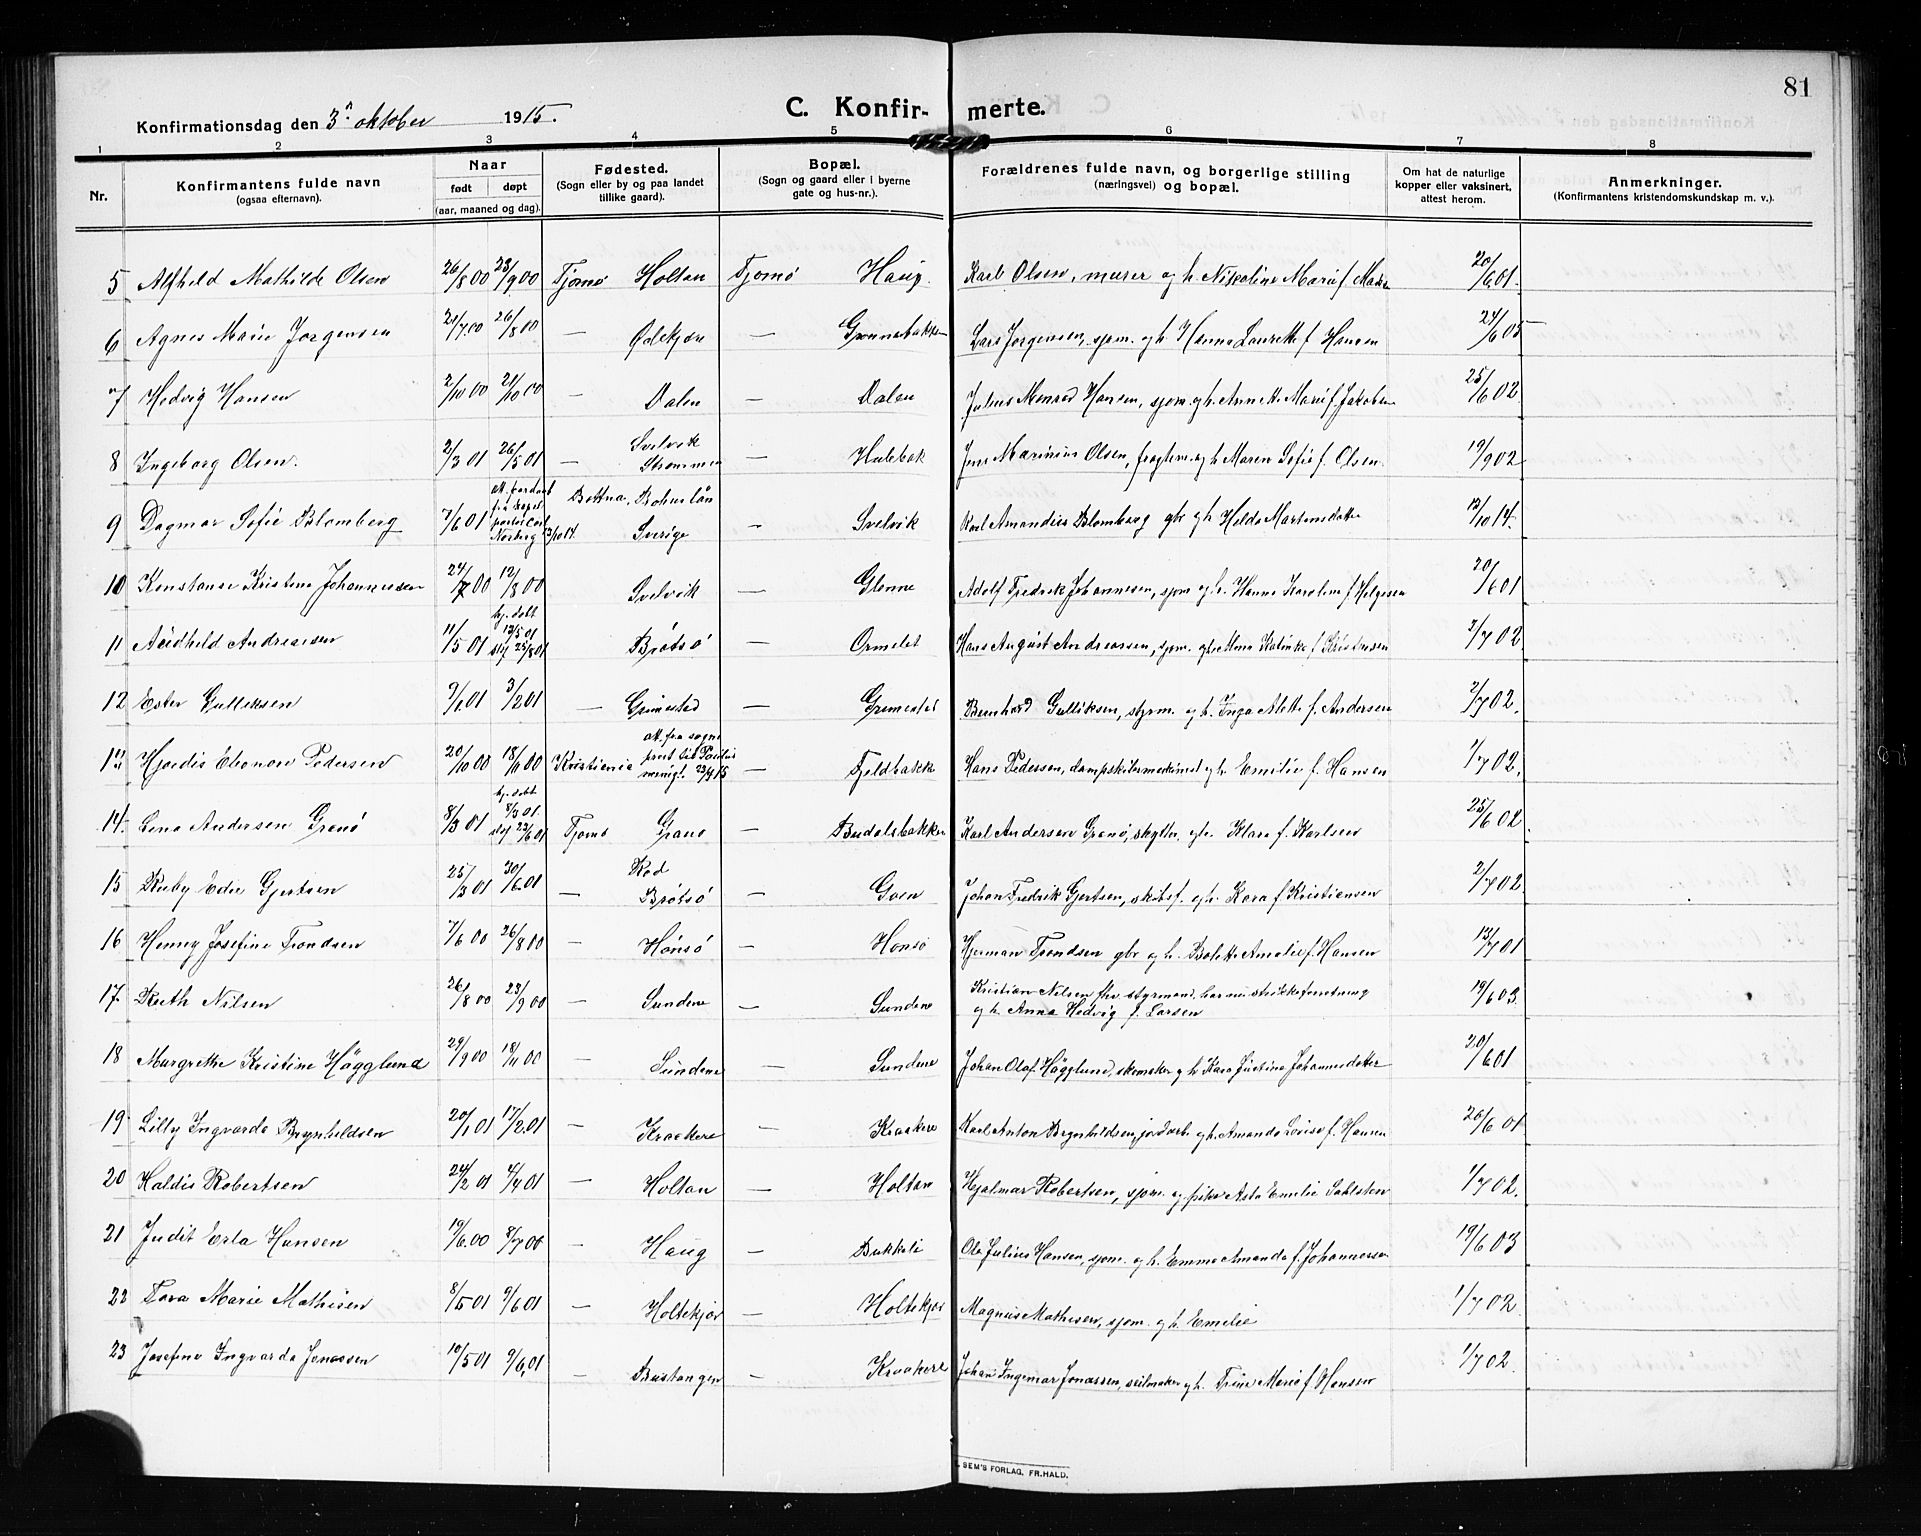 81
C. Konfirmerte.
Konfirmationsdag den 3. oktober 1915.
1 2 3 4 5 6 7 8
Nr.
Konfirmantens fulde navn
(ogsaa efternavn).
Naar
født døpt
(aar, maaned og dag).
Fødested.
(Sogn eller by og paa landet
tillike gaard).
Bopæl.
(Sogn og gaard eller i byerne
gate og hus-nr.).
Forældrenes fulde navn, og borgerlige stilling
(næringsvei) og bopæl.
Om hat de naturlige
kopper eller vaksinert,
attest herom.
Anmerkninger.
(Konfirmantens kristendomskundskap m. v.).
5 Alfhild Mathilde Olsen 26/8 00 23/9 00 Tjømø Holtan Tjømø Haug. Karl Olsen, murer og h. Nikoline Marie f. 20/6 01.
6 Agnes Marie Jørgensen 21/7 00 26/8 00 — Ødekjær — Grønnebakken Lars Jørgensen, sjøm. og h. Hanna Laurette f. Hansen 24/6 05
7 Hedvig Hansen 2/10 00 21/10 00 — Dalen — Dalen Julius Monrad Hansen, sjøm. og h. Annette Marie f. Jakobsen 25/6 02
8 Ingeborg Olsen. 2/3 01 26/5 01 — Svelvik Strømmen — Hulebak Jens Marinius Olsen, og h. Maren Sofie f. Olsen. 19/9 02
9 Dagmar Sofie Blomberg 7/6 01 Bottna, Bohuslän Sverige — Svelvik Karl Amandus Blomberg gbr og h. Hilda Martinsdotter 13/10 14.
10 Konstanse Kristine Johannessen 24/7 00 12/8 00 Svelvik — Glenne Adolf Fredrik Johannessen, sjøm og h. Hanna Karoline f. Helgesen 20/6 01
11 Andreassen 11/5 01 hj. døbt 12/5 01 st.f. 25/8 01 Brøtsø Ormelet Hans August Andreassen, sjøm. og h. Alma Katinka f. Kristensen 2/7 02
12 Ester Gulliksen 9/1 01 3/2 01 — Grimestad — Grimestad Bernhard Gulliksen, styrm. og h. Inga Alette f. Andersen 2/7 02.
13 Hjørdis Elonora Pedersen 20/10 00 18/11 00 Kristiania att. fra sogne prest til menigh. 23/4 15 — Fjeldbakk Hans Pedersen, og h. Emilie f. Hansen 1/7 02.
14. Lena Andersen Grenø 8/3 01 hj. døbt 8/3 01. st.f. 23/6 01 Tjømø Grenø — Budalsbakken Karl Andersen Grenø, skytter og h. Klara f. Karlsen 25/6 02
15 Ruby Edie Gjertsen 25/3 01 30/6 01 — Rød Brøtsø — Goen Johan Fredrik Gjertsen, skibsf. og h. Kora f. Kristiansen 2/7 02
16 Henny Josefine Trondsen 7/6 00 26/8 00 — Hønsø — Hønsø Hjerman Trondsen gbr og h. Bolette Amalie f. Hansen 13/7 01
17. Ruth Nilsen 26/8 00 23/9 00 — Sundene — Sundene Kristian Nilsen fhv. styrmand, har nu strikkeforretning
og h. Anna Hedvig f. Larsen 19/6 03.
18 Margrethe Kristine Hägglund 29/9 00 18/11 00 — Sundene — Sundene Johan Olaf Hägglund, skomaker og h. Kora Justina Johannesdotter 20/6 01
19 Lilly Ingvarda Brynhildsen 20/1 01 17/2 01 — Kraakere — Kraakere Karl Anton Brynhildsen, jordarb. og h. Amanda Lovise f. Hansen 20/6 01
20 Haldis Robertsen 24/2 01 4/4 01 — Holtan — Holtan Hjalmar Robertsen, sjøm. og pike Asta Emilie Dahlsten 1/7 02.
21 Judit Erla Hansen 19/6 00 8/7 00 — Haug — Bukkeli Ole Julius Hansen, sjøm. og h. Emma Amanda f. Johannessen 19/6 03
22 Tora Marie Mathisen 8/5 01 9/6 01 — Holtekjær — Holtekjær Magnus Mathisen, sjøm. og h. Emelie 1/7 02
23 Josefine Ingvarda Jonassen 10/5 01 9/6 01 — Bustangen — Kraakere Johan Ingemar Jonassen, seilmaker og h. Trine Marie f. Hansen 1/7 02.
SEM'S FORLAG, FR.HALD.